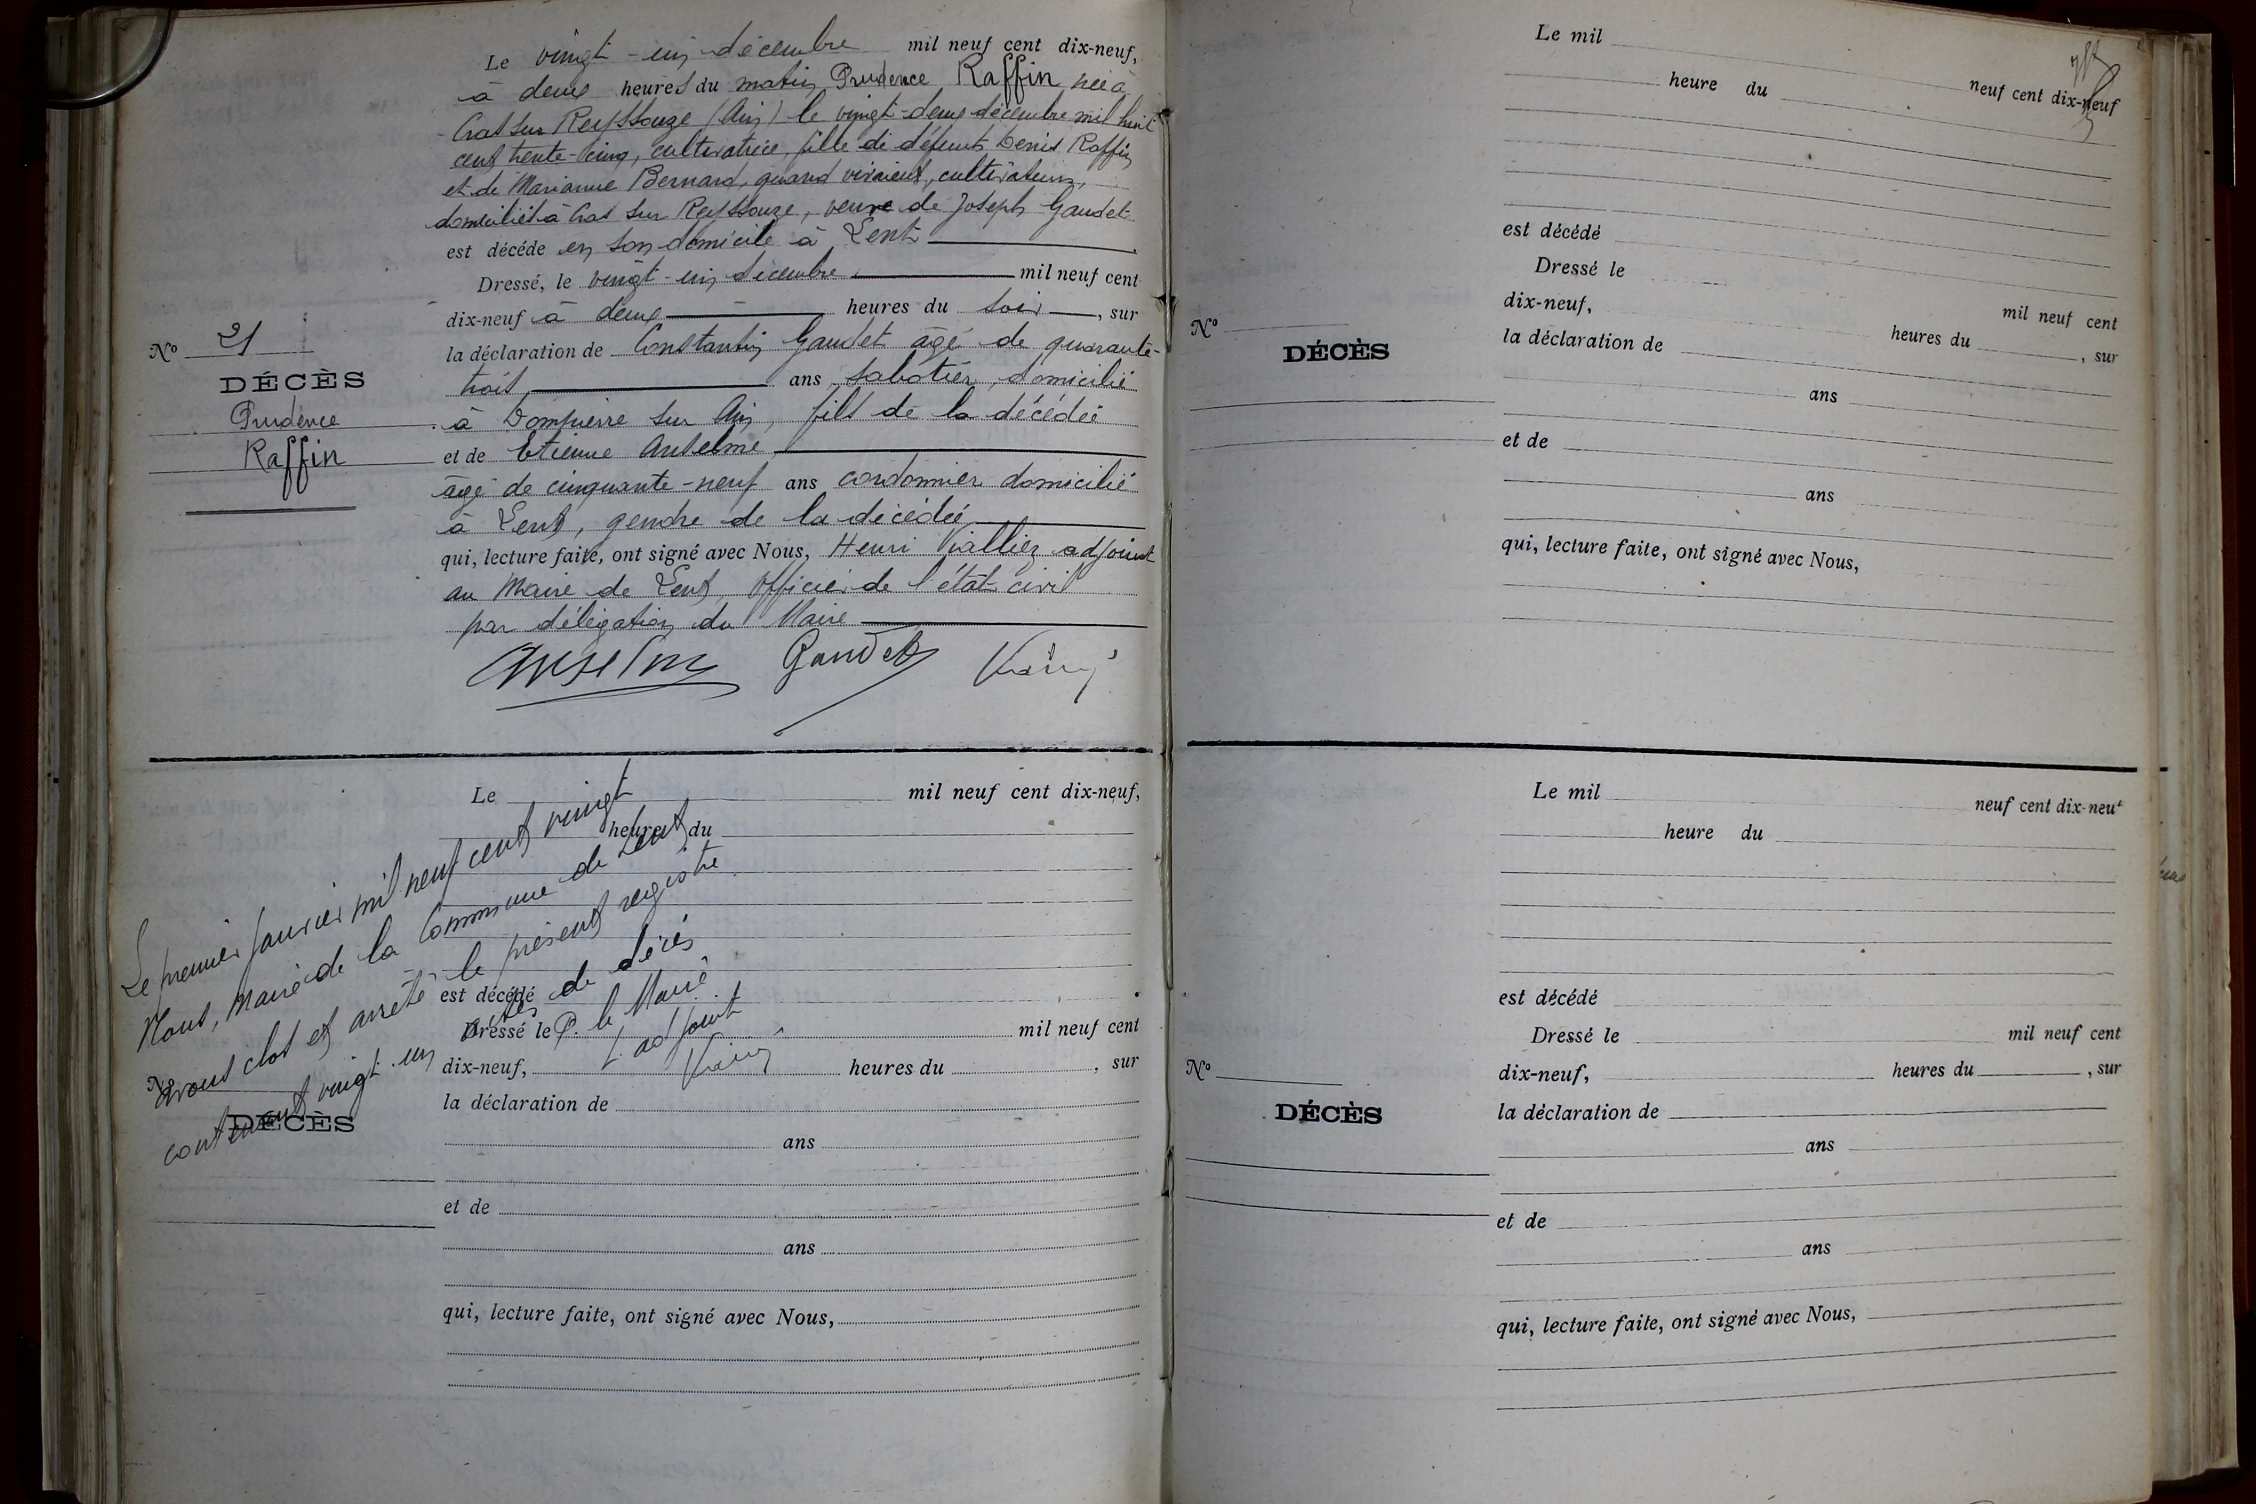 Le vingt-un décembre mil neuf cent dix-neuf,
à deux heures du matin Prudence Raffin née à
Cras sur Reyssouze (Ain) le vingt-deux décembre mil huit
cent trente-cinq, cultivatrice, fille de défunts Denis Raffin
et de Marianne Bernard, quand vivaient, cultivateurs,
domiciliés à Cras sur Reyssouze, veuve de Joseph Gaudet
est décédée en son domicile à Lent
Dressé, le vingt-un décembre mil neuf cent
dix-neuf à deux heures du soir, sur
la déclaration de Constantin Gaudet âgé de quarante-
trois ans sabotier, domicilié
à Dompierre sur Ain, fils de la décédée
et de Etienne Anselme
âgé de cinquante-neuf ans cordonnier domicilié
à Lent, gendre de la décédée
qui, lecture faite, ont signé avec Nous, Henri adjoint
au Maire de Lent, officier de l'état civil
par délégation du Maire
Anselme Gaudet
No 21
DÉCÈS
Prudence
Raffin
Le mil neuf cent dix-neuf,
heures du
est décédé
Dressé le mil neuf cent
dix-neuf, heures du , sur
la déclaration de
ans
et de
ans
qui, lecture faite, ont signé avec Nous,
No
DÉCÈS
Le premier janvier mil neuf cent vingt
Nous, Maire de la Commune de Lent
avons clos et arrêté le présent registre
contenant vingt-un actes de décès
P. le Maire
L'adjoint
Le mil neuf cent dix-neuf
heure du
est décédé
Dressé le mil neuf cent
dix-neuf, heures du , sur
la déclaration de
ans
et de
ans
qui, lecture faite, ont signé avec Nous,
No
DÉCÈS
Le mil neuf cent dix-neuf
heure du
est décédé
Dressé le mil neuf cent
dix-neuf, heures du , sur
la déclaration de
ans
et de
ans
qui, lecture faite, ont signé avec Nous,
No
DÉCÈS